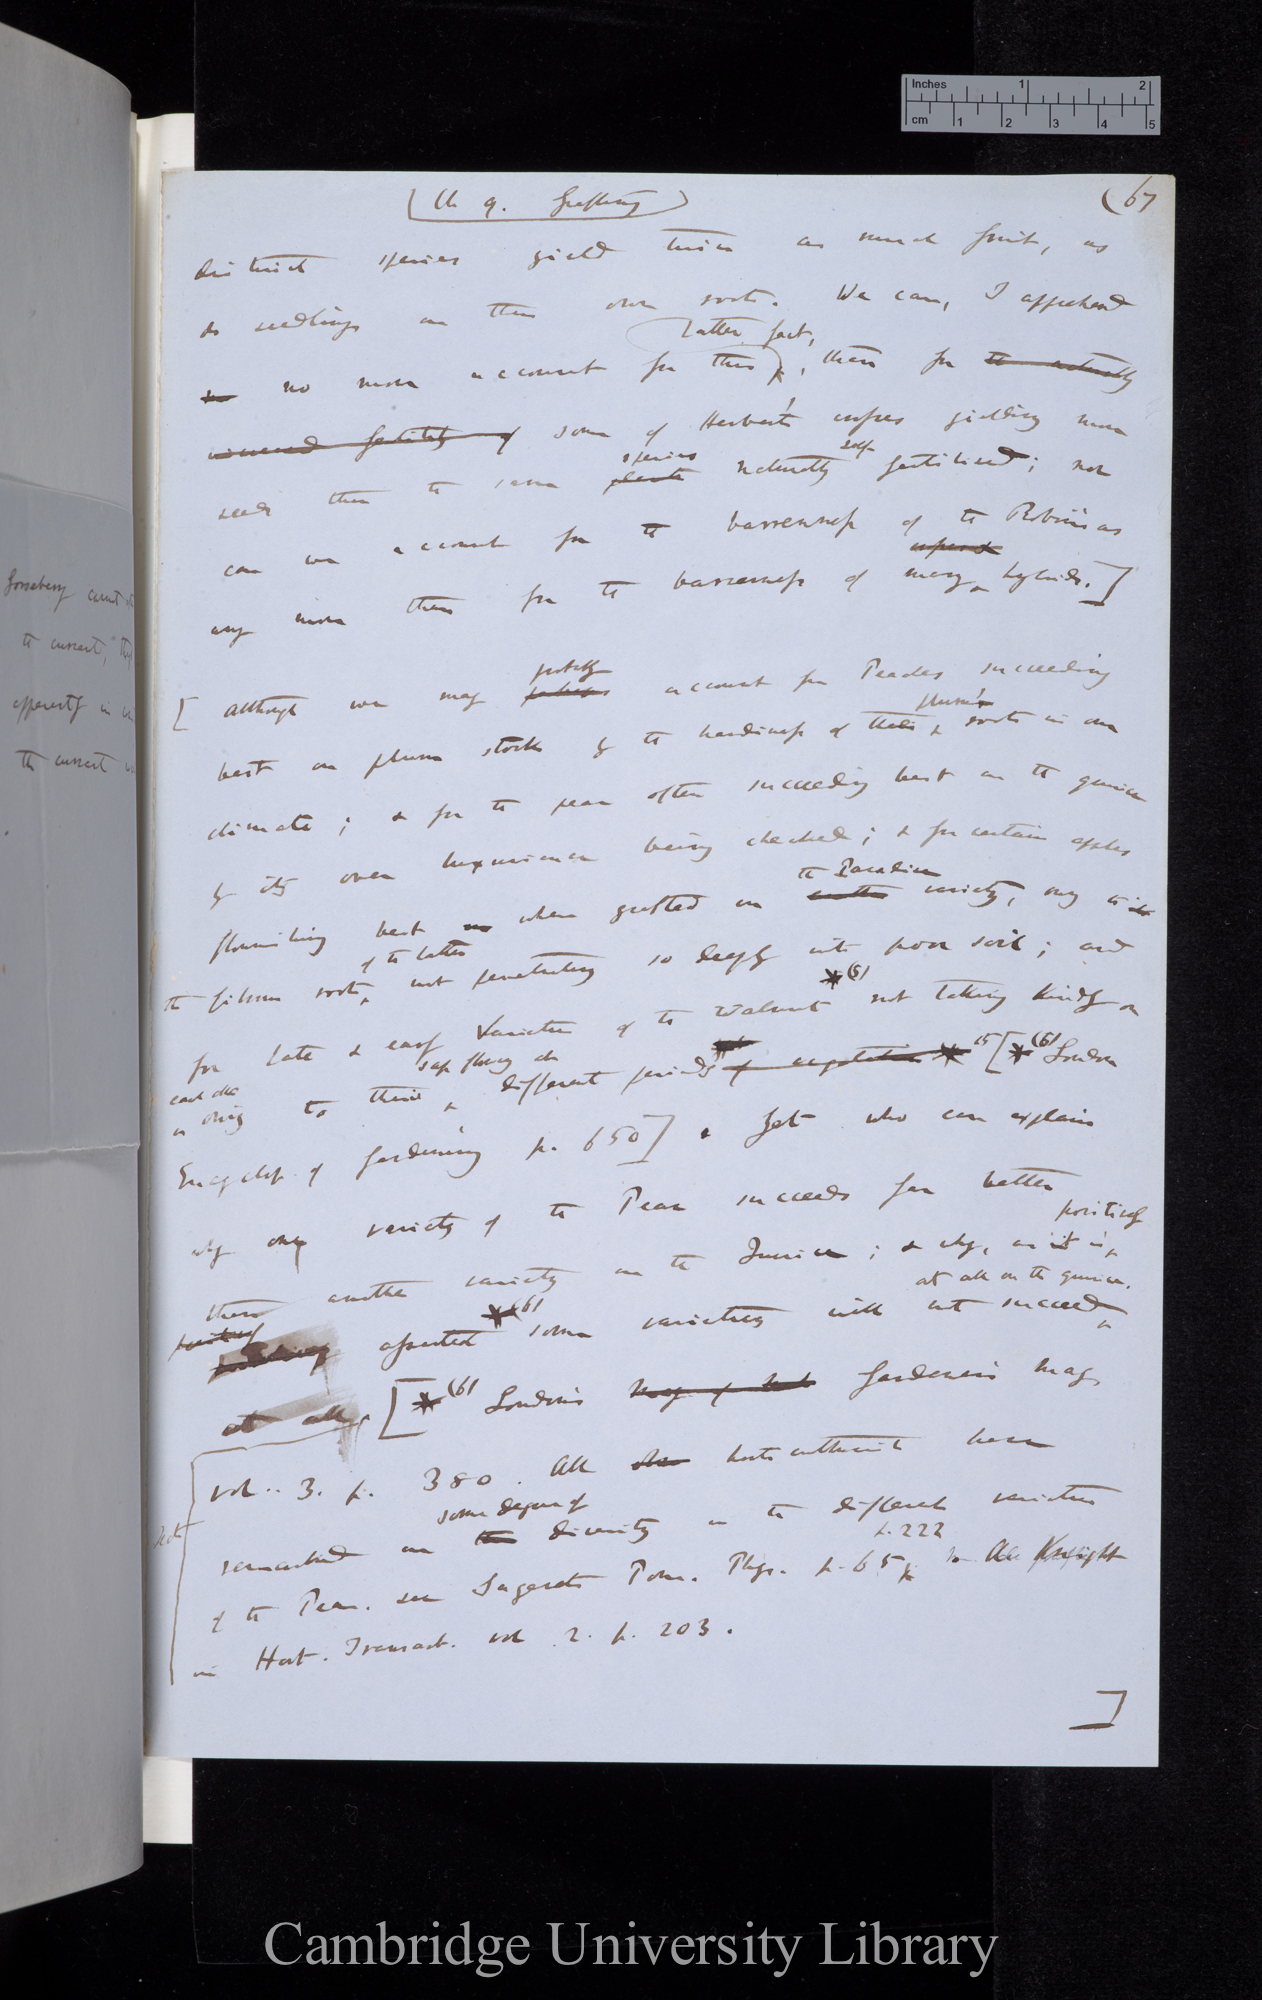 Inches 1 2
cm 1 2 3 4 5
(Ch 9. Grafting)
(67
distinct species yield twice as much fruit, as
do seedlings on their own roots. We can, I apprehend
latter fact,
no more account for this, than for the naturally
increased fertility of some of Herbert's crosses yielding more
species
self
seeds than the same plants naturally fertilised; nor
can we account for the barrenness of the Robinias
any more than for the barrenness of many hybrids.]
partly
[Although we may perhaps account for Peaches succeeding
plum's
best on plum stocks by the hardiness of their roots in our
climate; & for the pear often succeeding best on the quince
by its over luxuriance being checked; & for certain apples
the Paradise
flourishing best when grafted on another variety, owing to its
of the latter
the fibrous roots, not penetrating so deeply into poor soil; and
*(5)
for late & early varieties of the Walnut not taking kindly on
each other
sap flowing at
as owing to their different periods of vegetation *5 [*(6) Loudon
Encyclop. of Gardening p. 650] Yet who can explain
why one variety of the Pear succeeds far better
positively
than another variety on the Quince; & why, as it is
at all on the quince.
*(6)
positively asserted some varieties will not succeed
at all. [*(6) Loudon's Mag of Gardener's Mag.
vol. 3. p. 380. All horticulturists have
some degree of
remarked on the diversity in the different varieties
p. 222
of the Pear. see Sageret Pom. Phys. p. 65 so A. Knight
in Hort. Transact. vol 2. p. 203.
]
Gooseberry cannot
the currant,
apparently in
the currant
Cambridge University Library